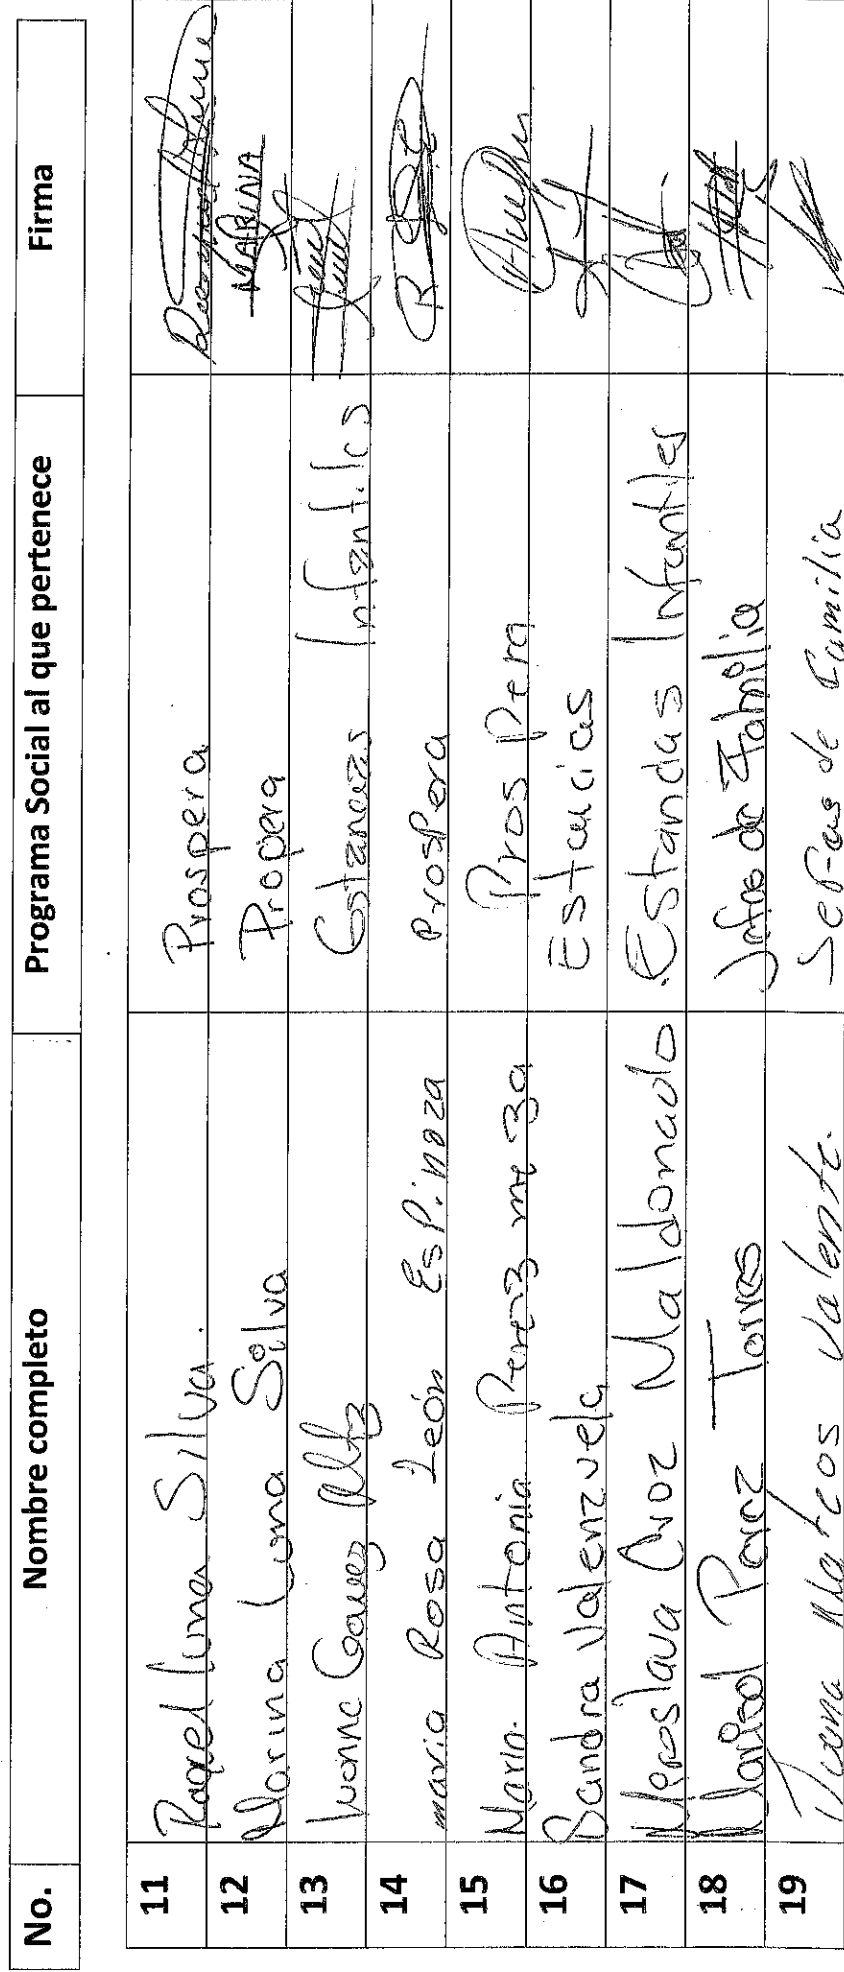 No. Nombre completo Programa Social al que pertenece Firma
11 Raquel Luma Silva. Prospera
12 Marina Luma Silva Propera MARINA
13 Ivonne Estancias Infantiles
14 maria Rosa León EsPinoza ProsPera
15 Maria Antonia Perez meza ProsPera
16 Sandra Valenzuela Estancias
17 Miroslava Cruz Maldonado Estancias Infantiles
18 Marisol Perez Torres Jefas de Familia
19 Juana Mateos Valente. de Familia